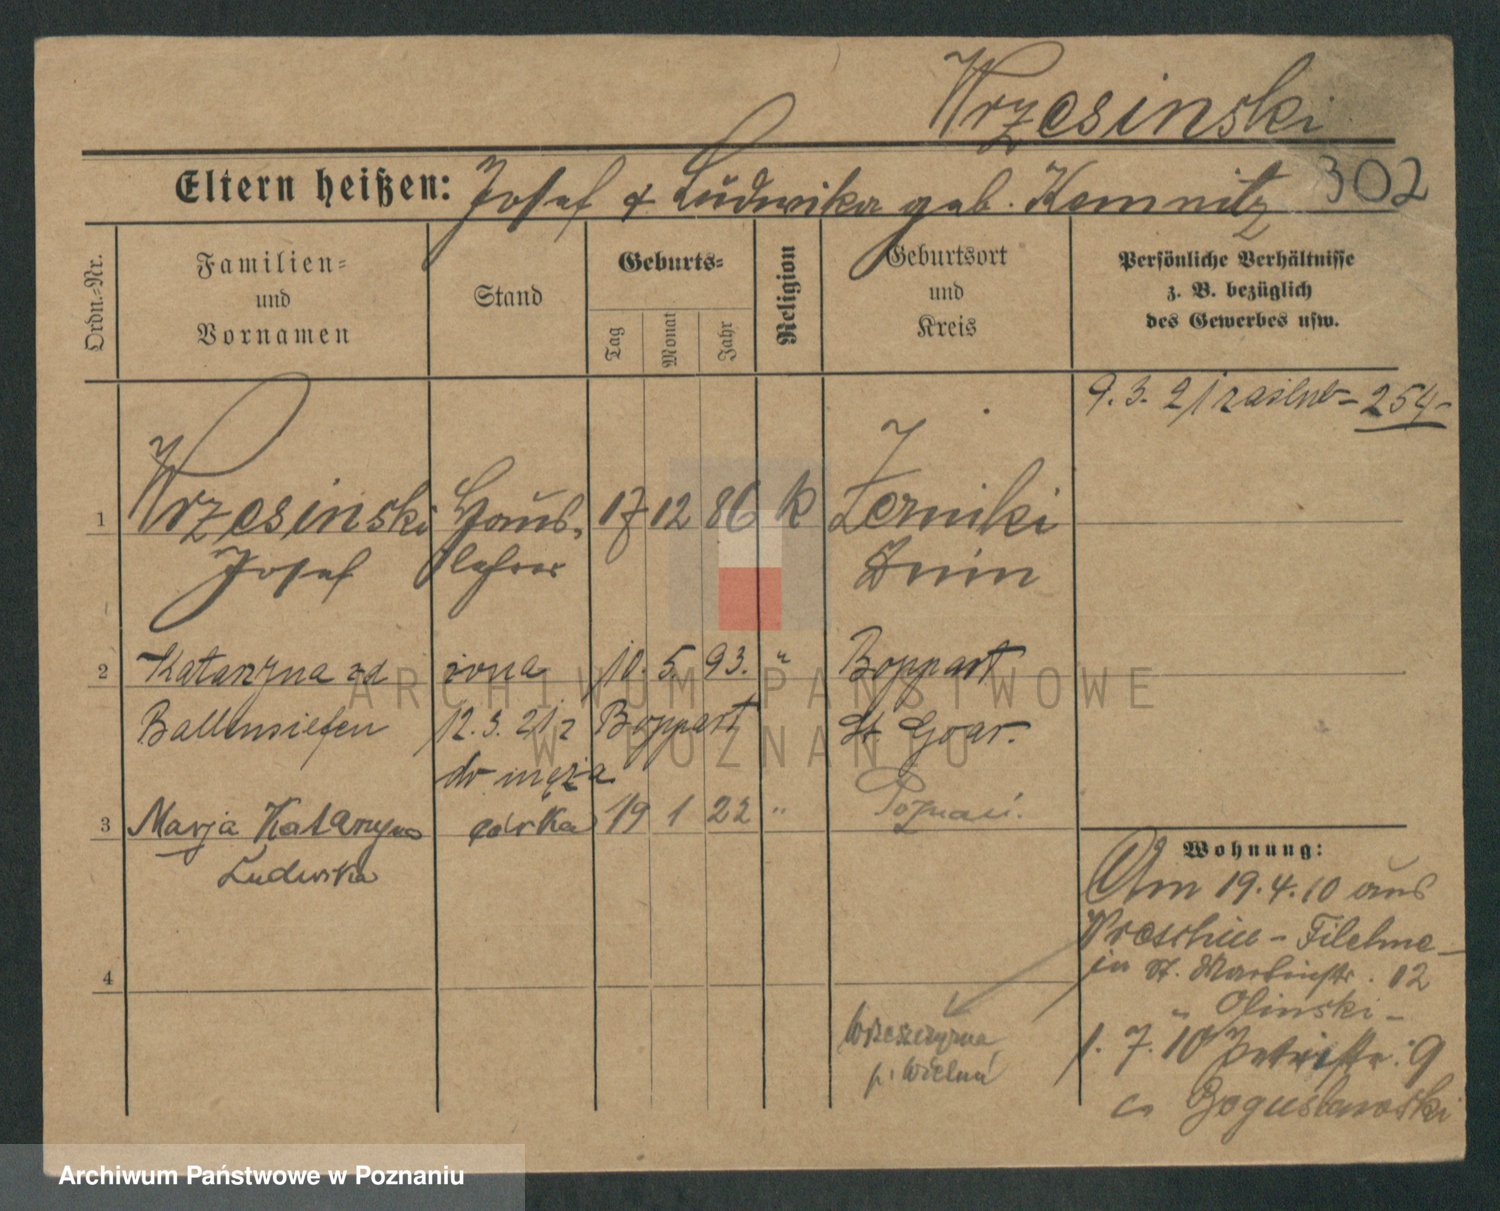 Wrzesinski
Eltern heißen: Josef & Ludwika geb. Kemnitz 302
Ordn.-Nr.
Familien-
und
Vornamen
Stand
Geburts-
Tag
Monat
Jahr
Religion
Geburtsort
und
Kreis
Persönliche Verhältnisse
z. B. bezüglich
des Gewerbes usw.
9. 3. 21 - 254 -
1 Wrzesinski Haus- 17 12 86 k Zerniki
Josef lehrer Znin
2 Katarzyna zd żona 10. 5. 93. " Boppart
Ballensiefen 12. 3. 21 z Boppart St Goar.
do męża
3 Marja Katarzyna córka 19 1 22 " Poznań.
Ludwika
4
Wohnung:
Am 19. 4. 10 aus
Wreschin - Filehne -
in St. Martinstr. 12
" Olinski -
1. 7. 10 Petristr. 9
Boguslawski
Wrzeszczyna
p. Wieleń
ARCHIWUM PAŃSTWOWE
W POZNANIU
Archiwum Państwowe w Poznaniu